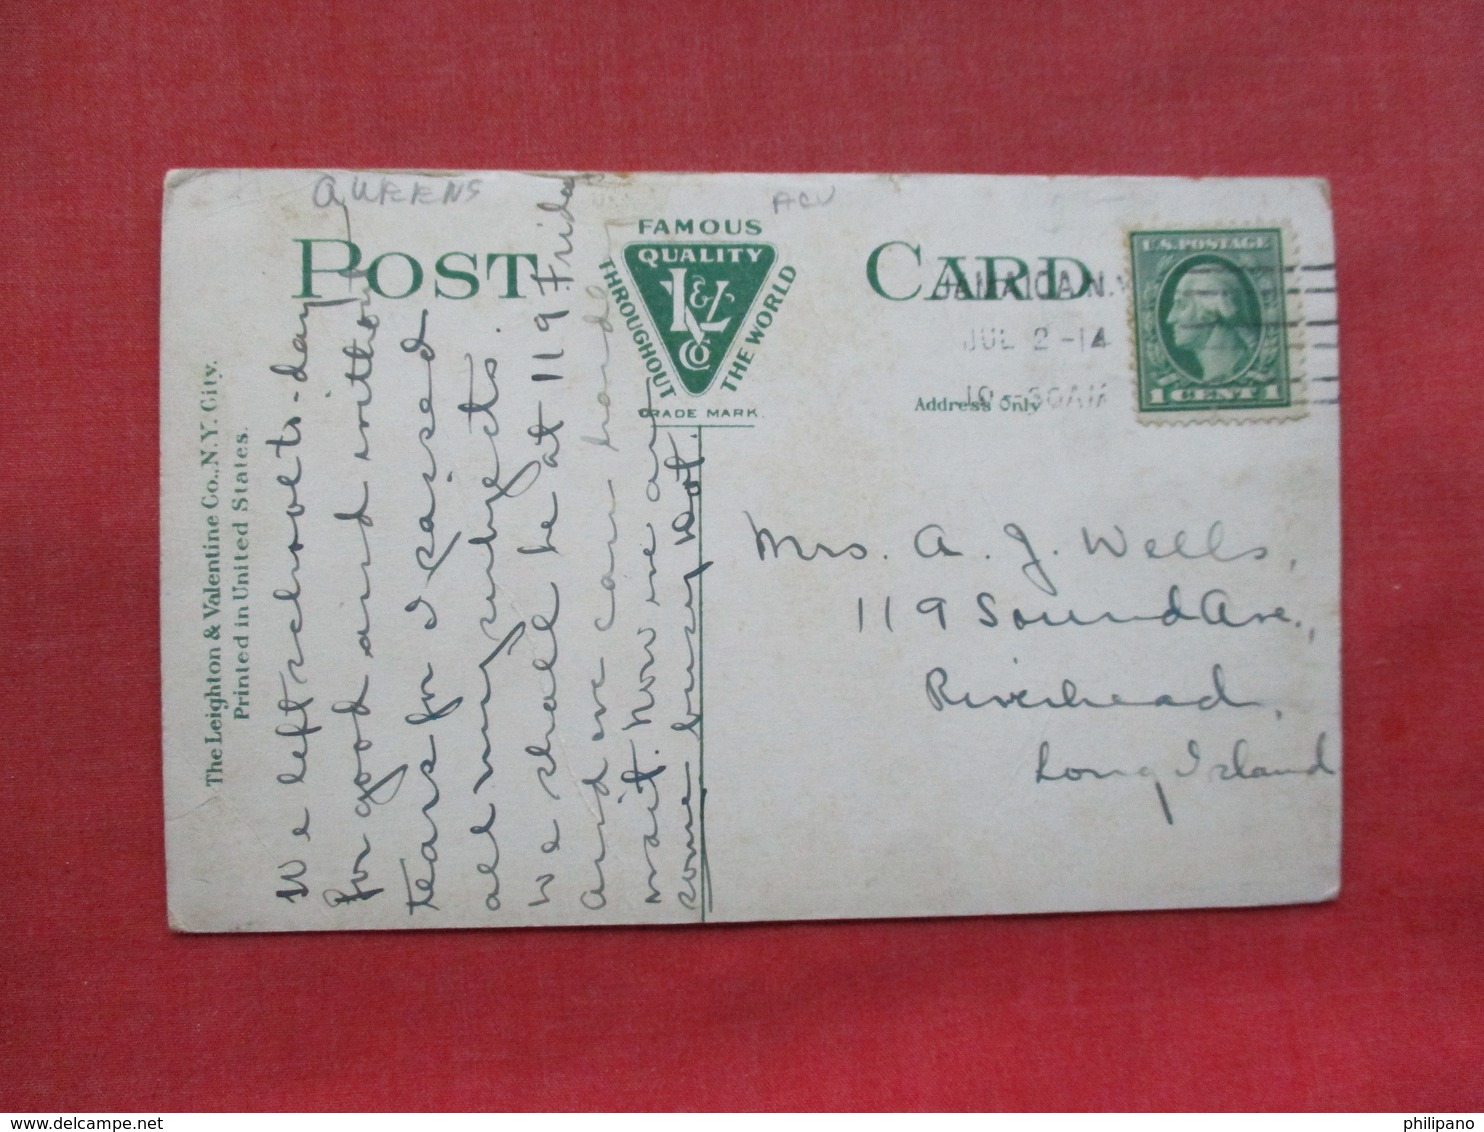 QUEENS
ACU
POST CARD
FAMOUS
QUALITY
THROUGHOUT
THE WORLD
V&L
Co
TRADE MARK.
JAMAICA N.Y
JUL 2 -14
10 -30AM
Address Only
U.S. POSTAGE
1 CENT 1
The Leighton & Valentine Co., N.Y. City.
Printed in United States.
We left school to-day
for good and without
tears for I raised
all my subjects.
We shall be at 119 Friday
and we can hardly
wait. Now we are
some busy not.
Mrs. A. J. Wells,
119 Sound Ave.,
Riverhead,
Long Island
philipano